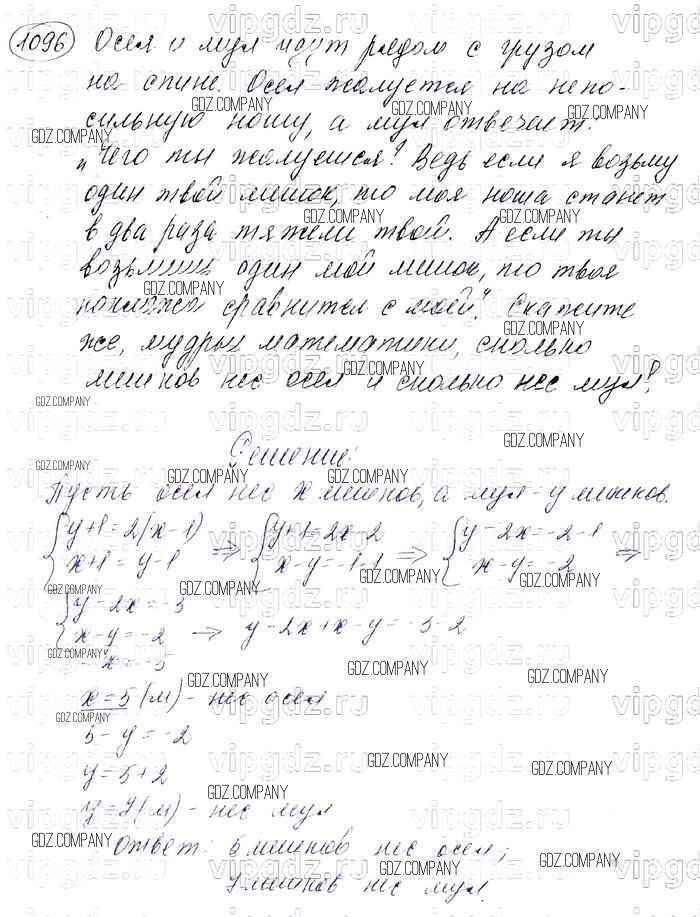 1096 Осел и мул идут рядом с грузом
на спине. Осел жалуется на непо-
сильную ношу, а мул отвечает:
„Чего ты жалуешься? Ведь если я возьму
один твой мешок, то моя ноша станет
в два раза тяжели твой. А если ты
возьмешь один мой мешок, то твоя
поклажа сравнится с моей“. Скажите
же, мудрый математики, сколько
мешков нес осел и сколько нес мул?
Решение:
Пусть осел нес x мешков, а мул - y мешков.
{y+1=2(x-1) => {y+1=2x-2 => {y-2x=-2-1 =>
{x+1=y-1 {x-y=-1-1 {x-y=-2
{y-2x=-3
{x-y=-2 -> y-2x+x-y=-3-2
-x=-5
x=5(м) - нес осел
5-y=-2
y=5+2
y=7(м) - нес мул
Ответ: 5 мешков нес осел;
7 мешков нес мул.
GDZ.COMPANY
vipgdz.ru